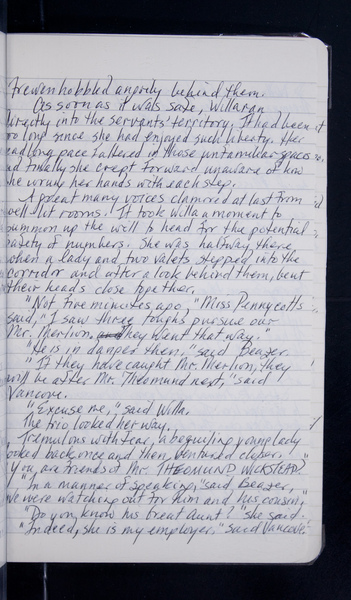 Trewenhobbled angerly behind them.
As soon as it wals safe, Willa ran
directly into the servants' territory. It had been
too long since she had enjoyed such liberty. Her
headlong pace faltered in those unfamiliar spaces
and finally she crept forward unaware of how
she wrung her hands with each step.
A great many voices clamored at last from
well lit rooms. It took Willa a moment to
summon up the will to head for the potential
safety of numbers. She was halfway there,
when a lady and two valets stepped into the
corridor and after a look behind them, bent
their heads close together.
"Not five minutes ago," Miss Pennycotts
said, "I saw three toughs pursue our
Mr. Merlion. They went that way."
"He is in danger then," said Beazer.
"If they have caught Mr. Merlion, they
will be after Mr. Theomund next," said
Vancove.
"Excuse me," said Willa.
The trio looked her way.
Tremulous with fear, a beguiling young lady
looked back once and then ventured closer.
"You are friends of Mr. THEOMUND WICKSTEAD?"
"In a manner of speaking," said Beazer,
"We were watching out for him and his cousin."
"Do you know his Great Aunt?" she said.
"Indeed, she is my employer," said Vancove.